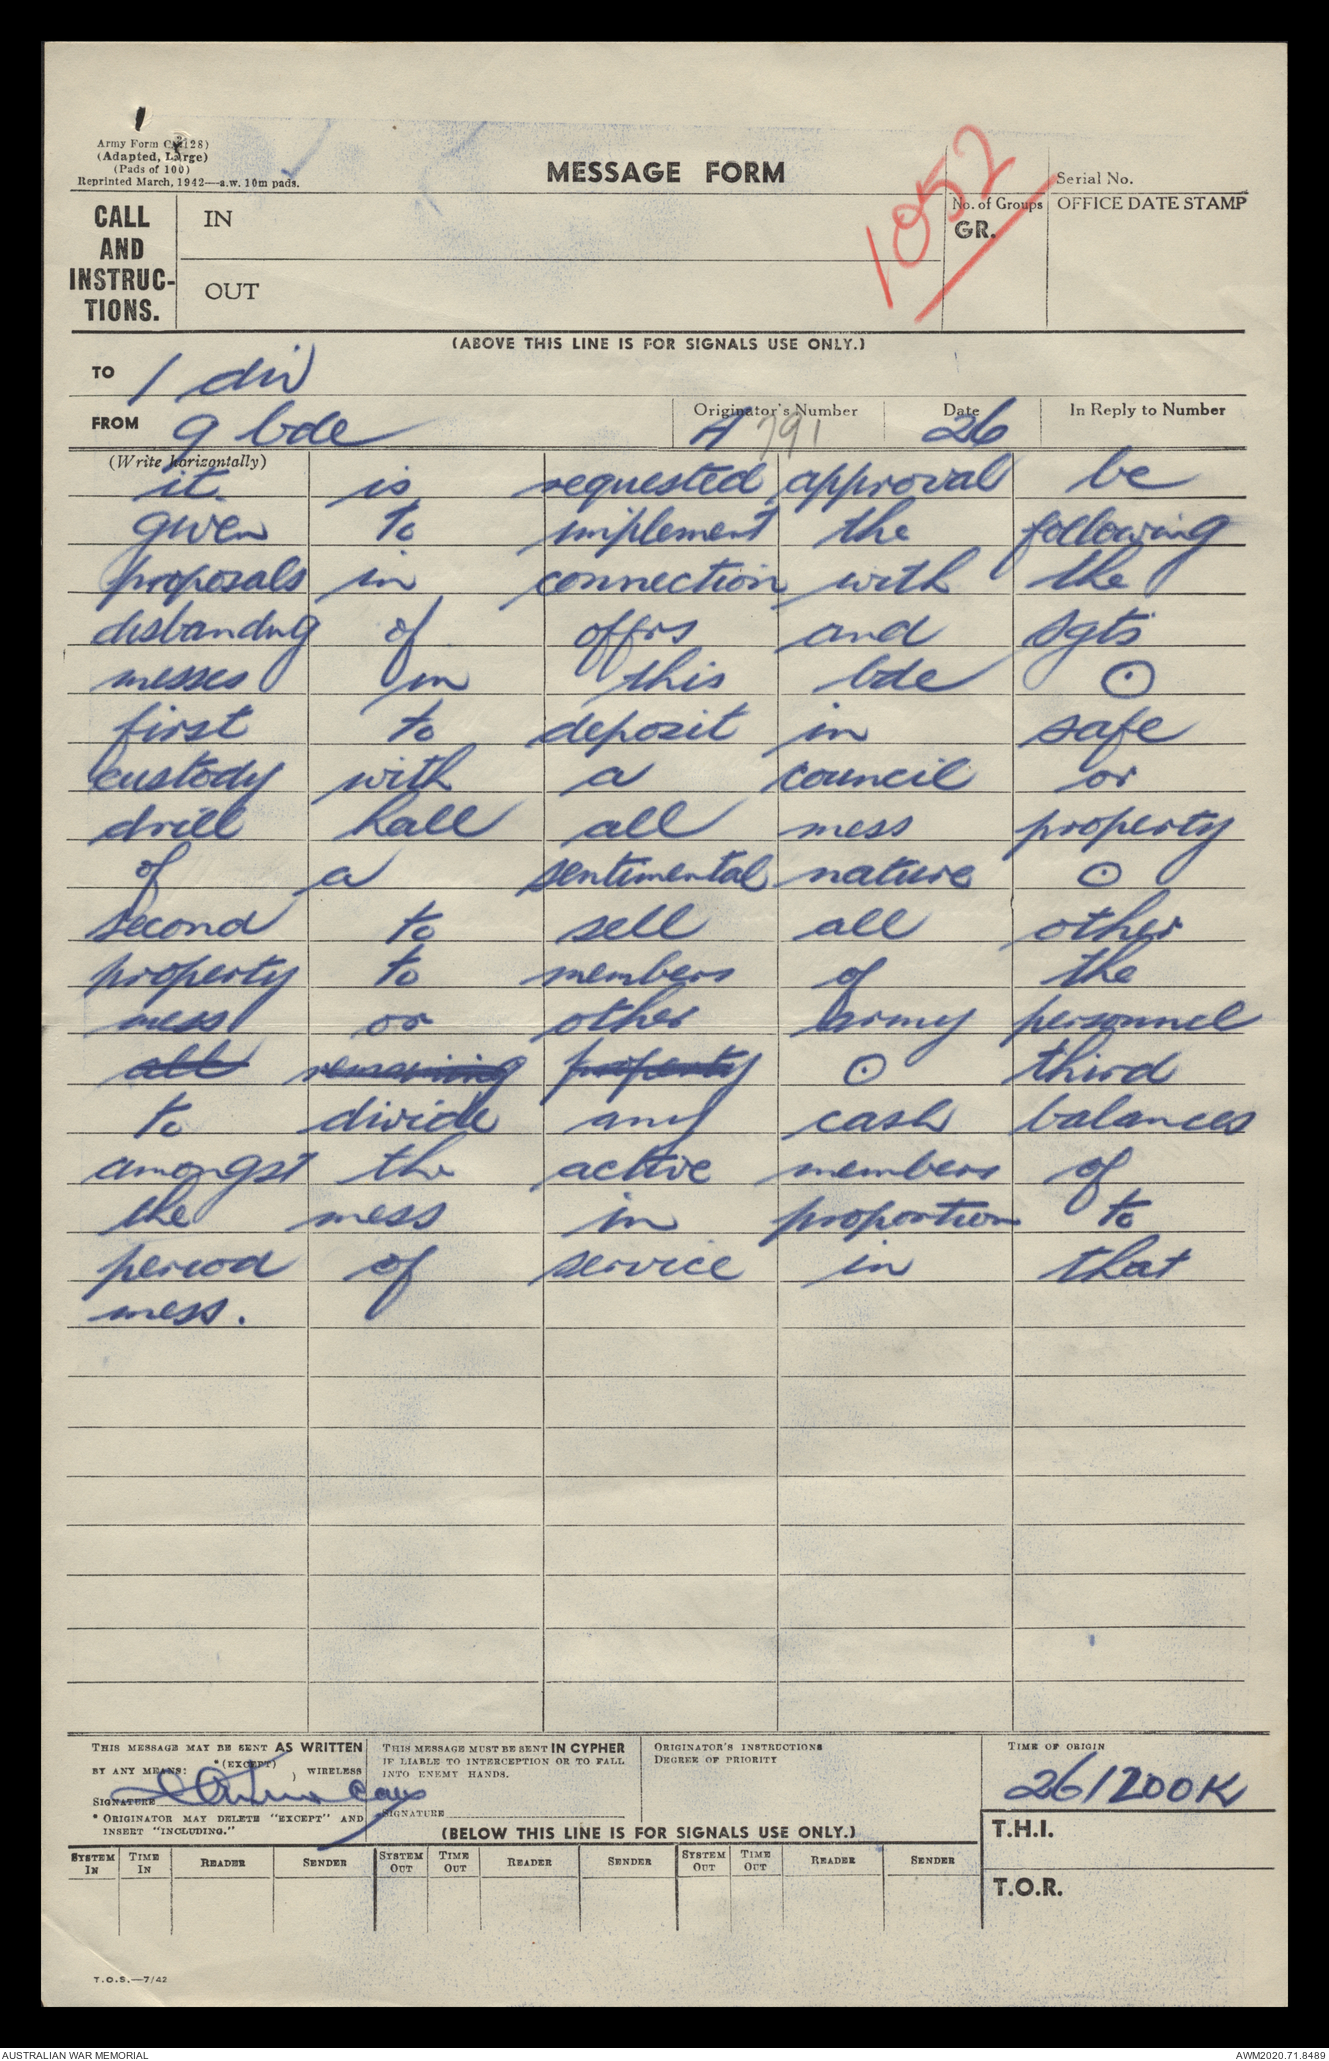 Army Form C2128)
(Adapted, Large)
(Pads of 100)
Reprinted March, 1942—a.w. 10m pads.
MESSAGE FORM
1052
Serial No.
CALL
AND
INSTRUC-
TIONS.
IN
OUT
No. of Groups
GR.
OFFICE DATE STAMP
(ABOVE THIS LINE IS FOR SIGNALS USE ONLY.)
TO 1 div
FROM 9 bde
Originator's Number
A 791
Date
26
In Reply to Number
(Write horizontally)
it is requested approval be
given to implement the following
proposals in connection with the
disbanding of offrs and sgts
messes in this bde ⊙
first to deposit in safe
custody with a council or
drill hall all mess property
of a sentimental nature ⊙
second to sell all other
property to members of the
mess or other army personnel
all remaining property ⊙ third
to divide any cash balances
amongst the active members of
the mess in proportion to
period of service in that
mess.
THIS MESSAGE MAY BE SENT AS WRITTEN
BY ANY MEANS: *(EXCEPT) WIRELESS
SIGNATURE
* ORIGINATOR MAY DELETE "EXCEPT" AND
INSERT "INCLUDING."
THIS MESSAGE MUST BE SENT IN CYPHER
IF LIABLE TO INTERCEPTION OR TO FALL
INTO ENEMY HANDS.
SIGNATURE
ORIGINATOR'S INSTRUCTIONS
DEGREE OF PRIORITY
TIME OF ORIGIN
261200K
(BELOW THIS LINE IS FOR SIGNALS USE ONLY.)
T.H.I.
T.O.R.
SYSTEM IN TIME IN READER SENDER SYSTEM OUT TIME OUT READER SENDER SYSTEM OUT TIME OUT READER SENDER
T.O.S.—7/42
AUSTRALIAN WAR MEMORIAL
AWM2020.71.8489